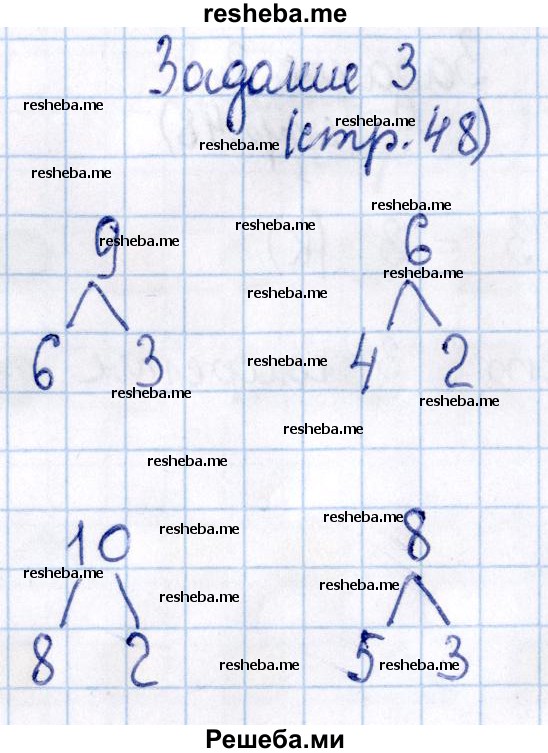 resheba.me
Задание 3
resheba.me
resheba.me
resheba.me (стр. 48)
resheba.me
resheba.me
9 resheba.me resheba.me 6
resheba.me
resheba.me
6 3 resheba.me 4 2
resheba.me resheba.me
resheba.me
resheba.me
10 resheba.me resheba.me 8
resheba.me resheba.me
resheba.me
8 2 resheba.me 5 resheba.me 3
Решеба.ми